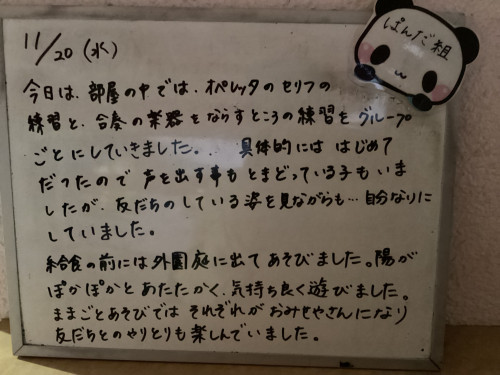 11/20 (水)
ぱんだ組
今日は、部屋の中では、オペレッタのセリフの
練習と、合奏の楽器をならすところの練習をグループ
ごとにしていきました。 具体的には はじめて
だったので 声を出す事も とまどっている子もいま
したが、友だちのしている姿を見ながらも…自分なりに
していました。
給食の前には外園庭に出てあそびました。陽が
ぽかぽかとあたたかく、気持ち良く遊びました。
ままごとあそびでは それぞれが おみせやさんになり
友だちとのやりとりも楽しんでいました。